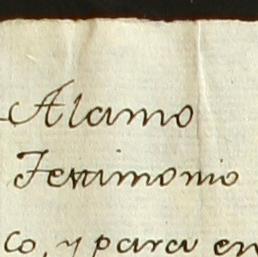 Alamo
Testimonio
co, y para en